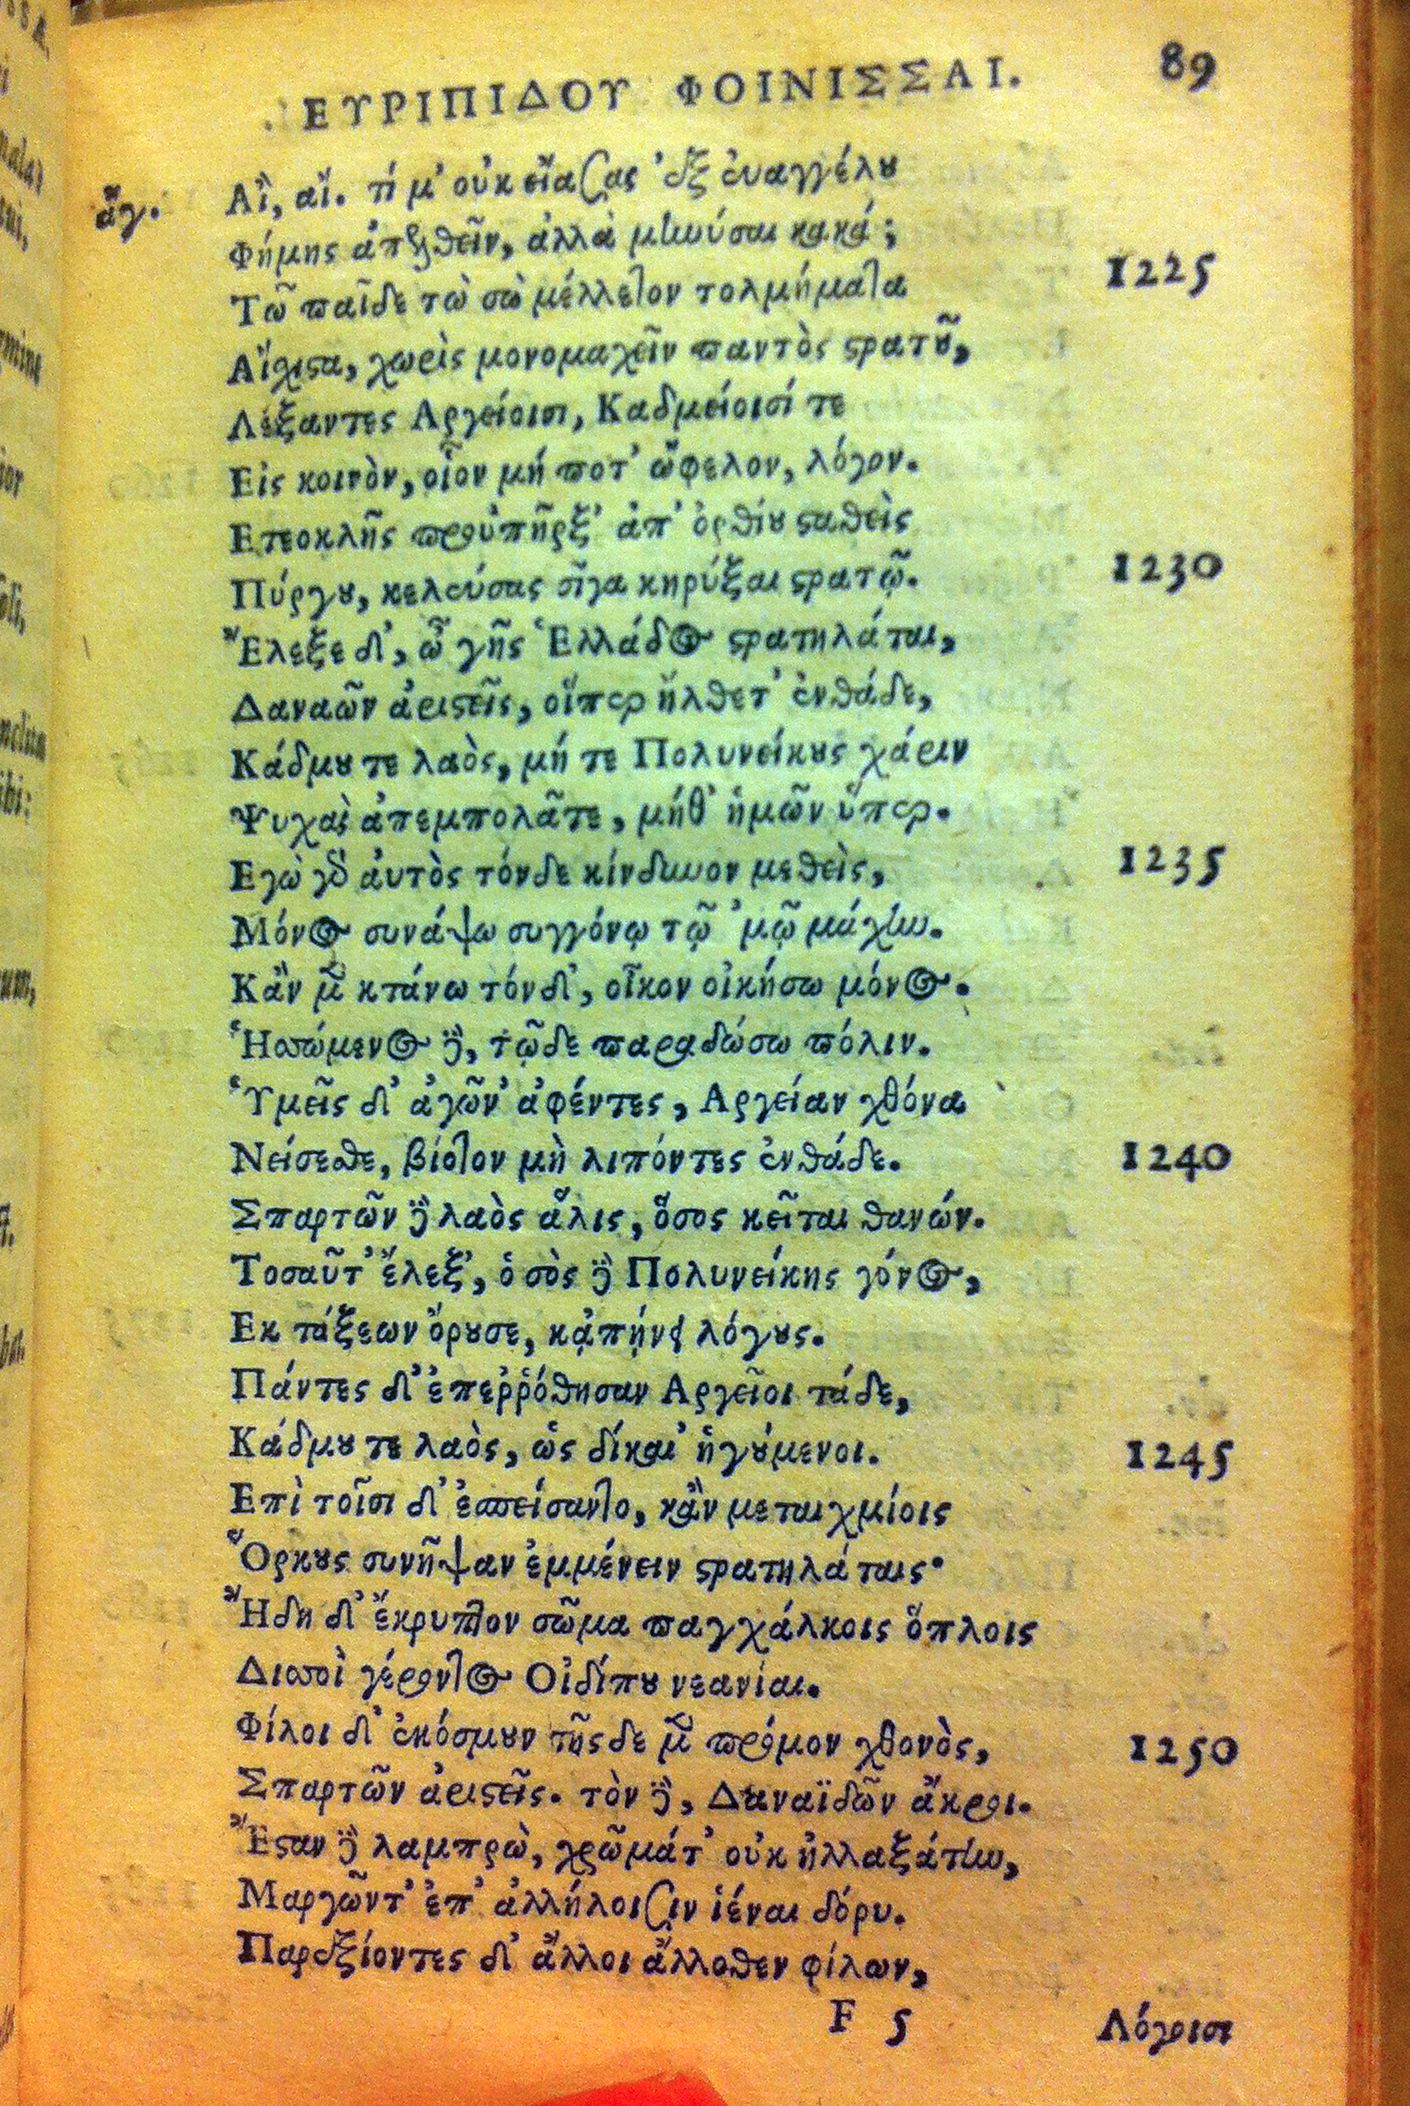 ΕΥΡΙΠΙΔΟΥ ΦΟΙΝΙΣΣΑΙ. 89
ἄγ. Αἲ, αἴ. τί μ' οὐκ εἴασας ἐξ ἐυαγγέλου
Φήμης ἀπελθεῖν, ἀλλὰ μηνύσαι κακά;
Τῶ παῖδε τὼ σὼ μέλλετον τολμήματα 1225
Αἴχιστα, χωρὶς μονομαχεῖν παντὸς στρατοῦ,
Λέξαντες Αργείοισι, Καδμείοισί τε
Εἰς κοινὸν, οἷον μή ποτ' ὤφελον, λόγον.
Ετεοκλῆς προὐπῆρξ' ἀπ' ὀρθίου σταθεὶς
Πύργου, κελεύσας σῖγα κηρύξαι στρατῷ. 1230
Ἔλεξε δ', ὦ γῆς Ἑλλάδος στρατηλάται,
Δαναῶν ἀριστεῖς, οἵπερ ἤλθετ' ἐνθάδε,
Κάδμου τε λαὸς, μή τε Πολυνείκους χάριν
Ψυχὰς ἀπεμπολᾶτε, μήθ' ἡμῶν ὕπερ.
Εγὼ γὰρ ἀυτὸς τόνδε κίνδυνον μεθεὶς, 1235
Μόνος συνάψω συγγόνῳ τῷ 'μῷ μάχην.
Κἂν μὲν κτάνω τόνδ', οἶκον οἰκήσω μόνος.
Ἡσσώμενος δὲ, τῷδε παραδώσω πόλιν.
Ὑμεῖς δ' ἀγῶν' ἀφέντες, Αργείαν χθόνα
Νείσεσθε, βίοτον μὴ λιπόντες ἐνθάδε. 1240
Σπαρτῶν δὲ λαὸς ἅλις, ὅσος κεῖται θανών.
Τοσαῦτ' ἔλεξ', ὁ σὸς δὲ Πολυνείκης γόνος,
Εκ τάξεων ὄρουσε, κᾀπῄνει λόγους.
Πάντες δ' ἐπεῤῥόθησαν Αργεῖοι τάδε,
Κάδμου τε λαὸς, ὡς δίκαι' ἡγούμενοι. 1245
Επὶ τοῖσι δ' ἐσπείσαντο, κἂν μεταιχμίοις
Ὅρκους συνῆψαν ἐμμένειν στρατηλάταις·
Ἤδη δ' ἔκρυπτον σῶμα παγχάλκοις ὅπλοις
Δισσοὶ γέροντος Οἰδίπου νεανίαι.
Φίλοι δ' ἐκόσμουν τῆςδε μὲν πρόμον χθονὸς, 1250
Σπαρτῶν ἀριστεῖς. τὸν δὲ, Δαναϊδῶν ἄκροι.
Ἔσταν δὲ λαμπρὼ, χρῶμάτ' οὐκ ἠλλαξάτην,
Μαργῶντ' ἐπ' ἀλλήλοισιν ἱέναι δόρυ.
Παρεξίοντες δ' ἄλλοι ἄλλοθεν φίλων,
F 5 Λόγοισι